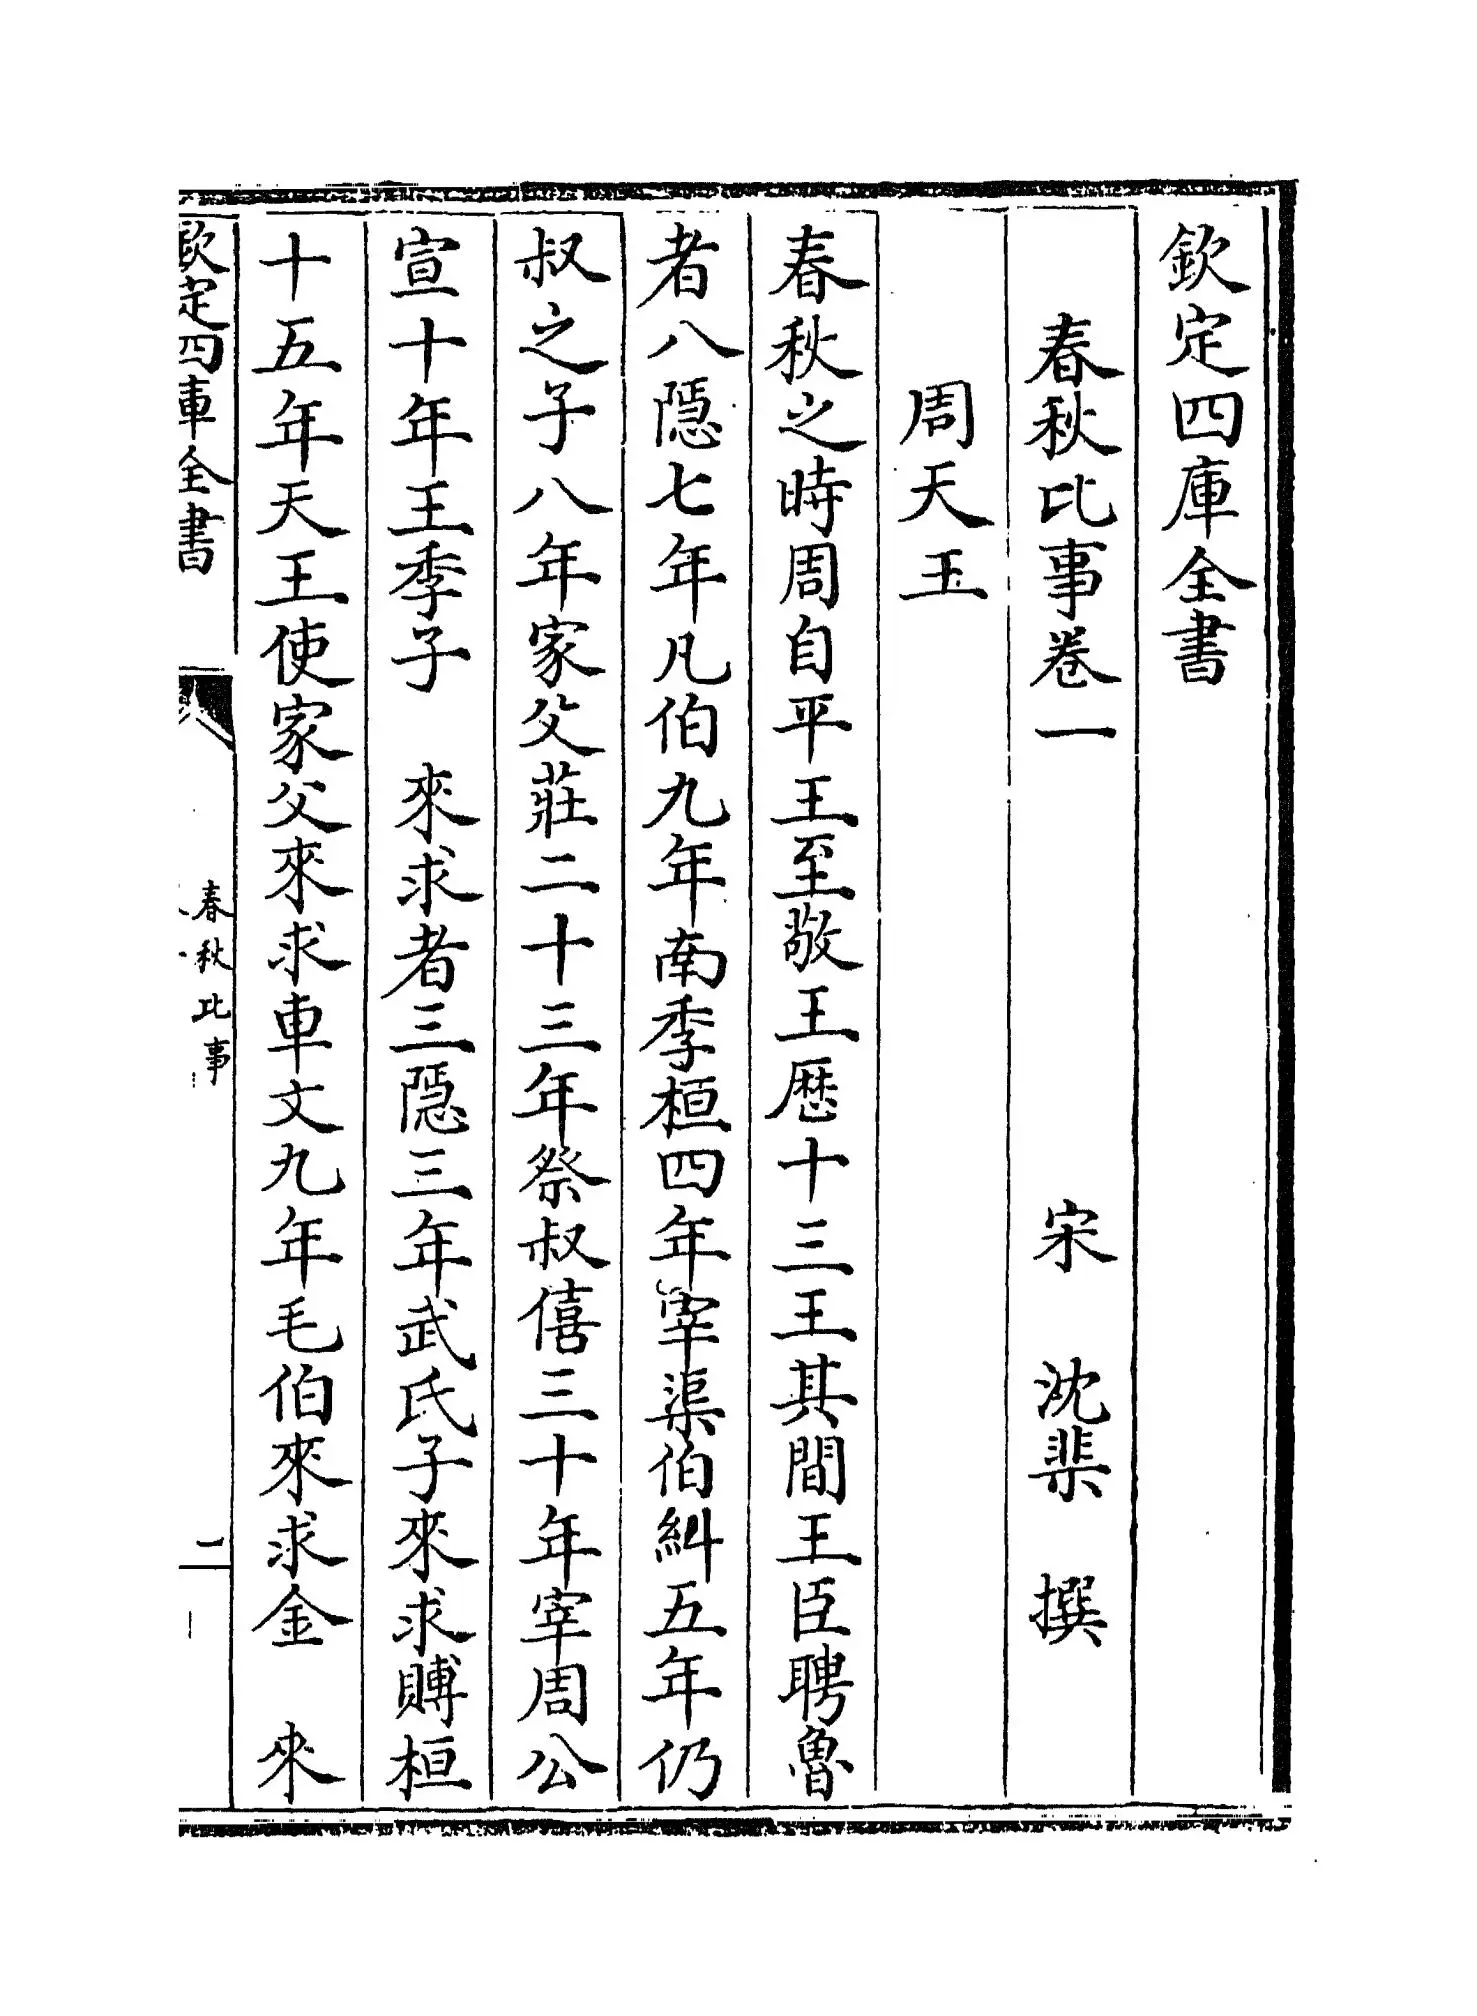 欽定四庫全書
春秋比事卷一　宋　沈棐　撰
周天王
春秋之時周自平王至敬王歴十三王其間王臣聘魯
者八隱七年凡伯九年南季桓四年宰渠伯糾五年仍
叔之子八年家父莊二十三年祭叔僖三十年宰周公
宣十年王季子　來求者三隱三年武氏子來求賻桓
十五年天王使家父來求車文九年毛伯來求金　來
欽定四庫全書
春秋比事
一